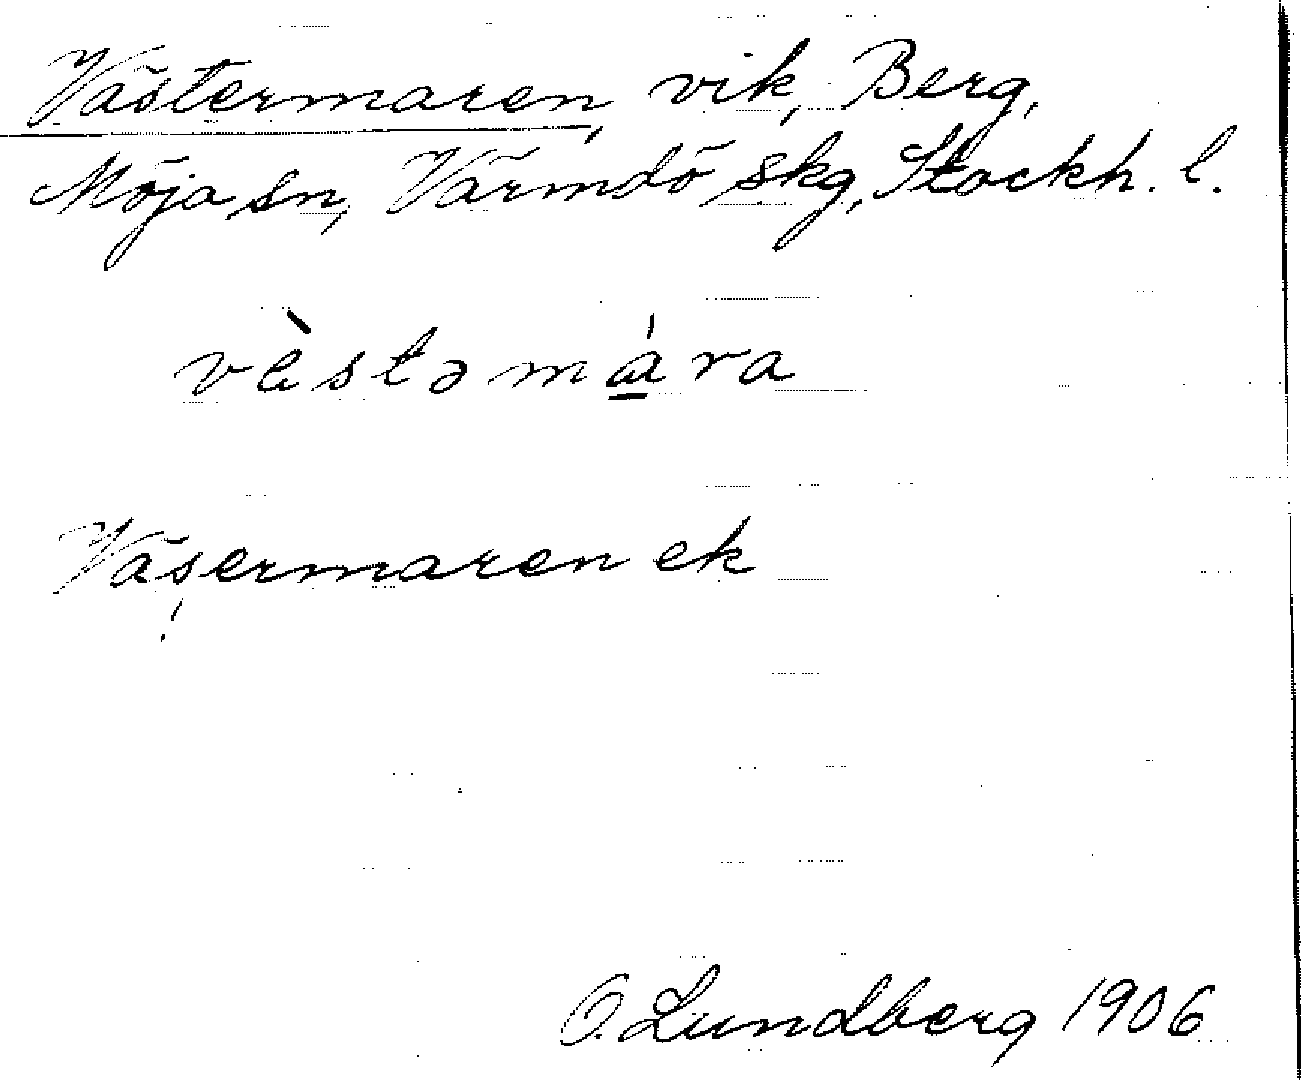 Västermaren, vik, Berg,
Möja sn, Värmdö skg, Stockh. l.
vὰstəmára
Väsermaren ek
!
O. Lundberg 1906